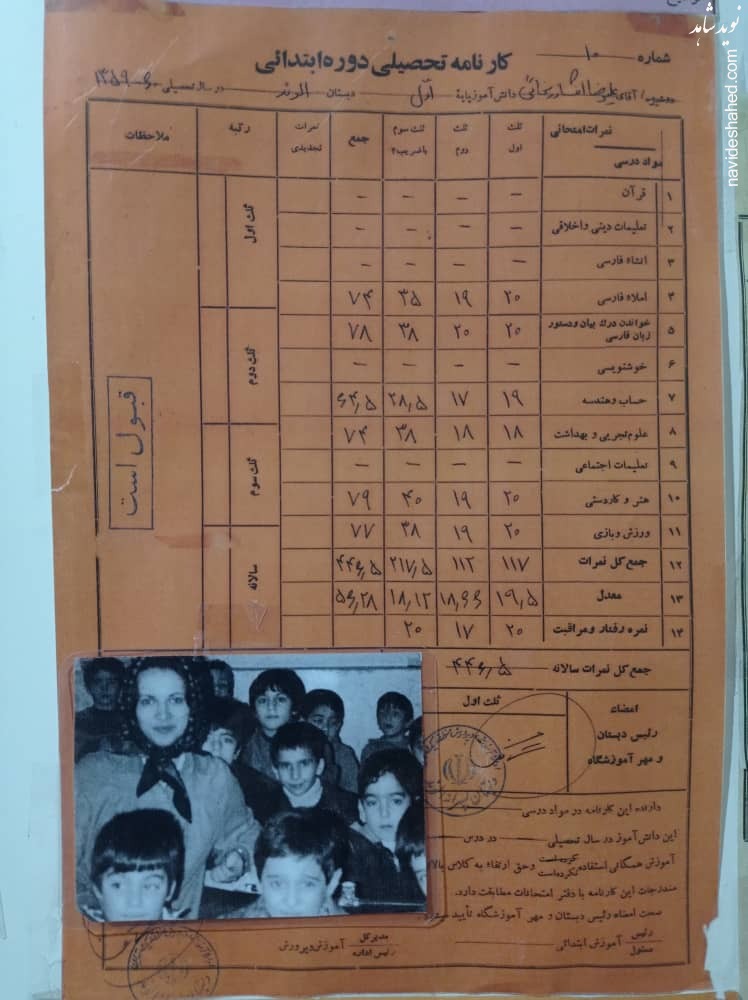 نوید شاهد
navideshahed.com
شماره ۱۰
کارنامه تحصیلی دوره ابتدائی
آقای علیرضا افشار دانش‌آموز پایهٔ اول دبستان الوند در سال تحصیلی ۶۰-۱۳۵۹
نمرات امتحانی مواد درسی ثلث اول ثلث دوم ثلث سوم با ضریب ۲ جمع نمرات تجدیدی رتبه ملاحظات
۱ قرآن — — — —
۲ تعلیمات دینی و اخلاقی — — — —
۳ انشاء فارسی — — — —
۴ املاء فارسی ۲۰ ۱۹ ۳۵ ۷۴
۵ خواندن درک بیان و دستور زبان فارسی ۲۰ ۲۰ ۳۸ ۷۸
۶ خوشنویسی — — — —
۷ حساب و هندسه ۱۹ ۱۷ ۲۸٫۵ ۶۴٫۵
۸ علوم تجربی و بهداشت ۱۸ ۱۸ ۳۸ ۷۴
۹ تعلیمات اجتماعی — — — —
۱۰ هنر و کاردستی ۲۰ ۱۹ ۴۰ ۷۹
۱۱ ورزش و بازی ۲۰ ۱۹ ۳۸ ۷۷
۱۲ جمع کل نمرات ۱۱۷ ۱۱۲ ۲۱۷٫۵ ۴۴۶٫۵
۱۳ معدل ۱۹٫۵ ۱۸٫۶۶ ۱۸٫۱۲ ۵۶٫۲۸
۱۴ نمره رفتار و مراقبت ۲۰ ۱۷ ۲۰
ثلث اول
ثلث دوم
ثلث سوم
سالانه
قبول است
جمع کل نمرات سالانه ۴۴۶٫۵
امضاء
رئیس دبستان
و مهر آموزشگاه
ثلث اول
دارنده این کارنامه در مواد درسی
این دانش‌آموز در سال تحصیلی در درس
آموزش همگانی استفاده کرده است نکرده است و حق ارتقاء به کلاس بالا
مندرجات این کارنامه با دفتر امتحانات مطابقت دارد.
صحت امضاء رئیس دبستان و مهر آموزشگاه تأیید
رئیس مسئول آموزش ابتدائی
مدیر کل رئیس اداره آموزش و پرورش